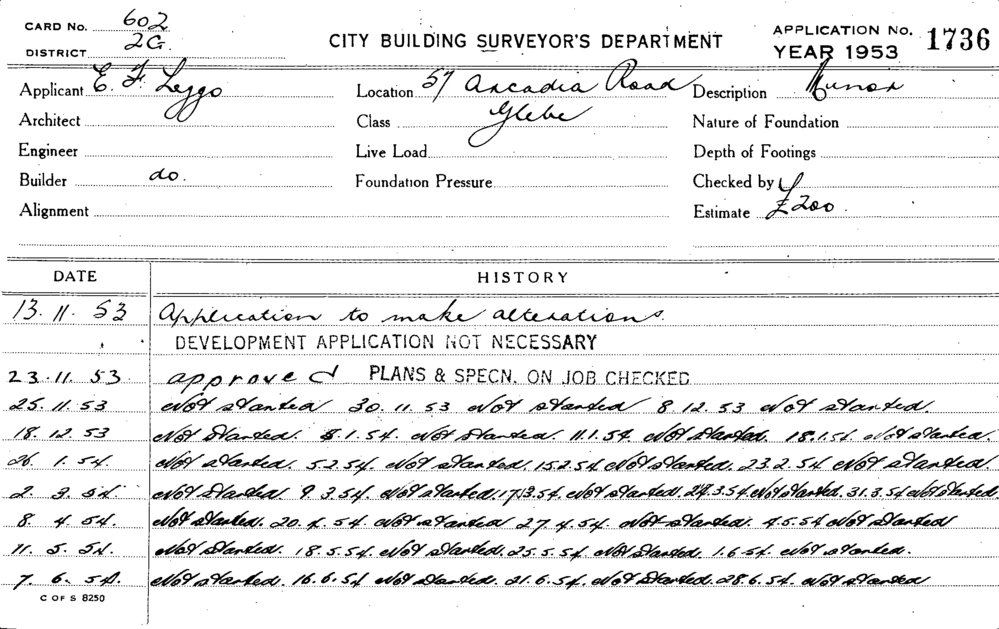 CARD No. 602
DISTRICT 2G.
CITY BUILDING SURVEYOR'S DEPARTMENT
APPLICATION No. 1736
YEAR 1953
Applicant E. F. Leggo Location 57 Arcadia Road Description Minor
Architect Class Glebe Nature of Foundation
Engineer Live Load Depth of Footings
Builder do. Foundation Pressure Checked by
Alignment Estimate £200.
DATE HISTORY
13. 11. 53 Application to make alterations.
DEVELOPMENT APPLICATION NOT NECESSARY
23. 11. 53. approved PLANS & SPECN. ON JOB CHECKED
25. 11. 53 Not started 30. 11. 53 Not started 8. 12. 53 Not started.
18. 12. 53 Not Started. 5.1.54. Not Started. 11.1.54. Not Started. 18.1.54 Not Started.
26. 1. 54. Not started. 5.2.54. Not started. 15.2.54 Not Started. 23.2.54 Not Started.
2. 3. 54. Not Started. 9.3.54. Not started. 17.3.54. Not Started. 24.3.54 Not Started. 31.3.54 Not Started.
8. 4. 54. Not Started. 20.4.54. Not started 27.4.54. Not Started. 4.5.54 Not Started
11. 5. 54. Not Started. 18.5.54. Not Started. 25.5.54. Not Started. 1.6.54. Not Started.
7. 6. 54. Not Started. 16.6.54 Not Started. 21.6.54. Not Started. 28.6.54. Not Started
C OF S 8250